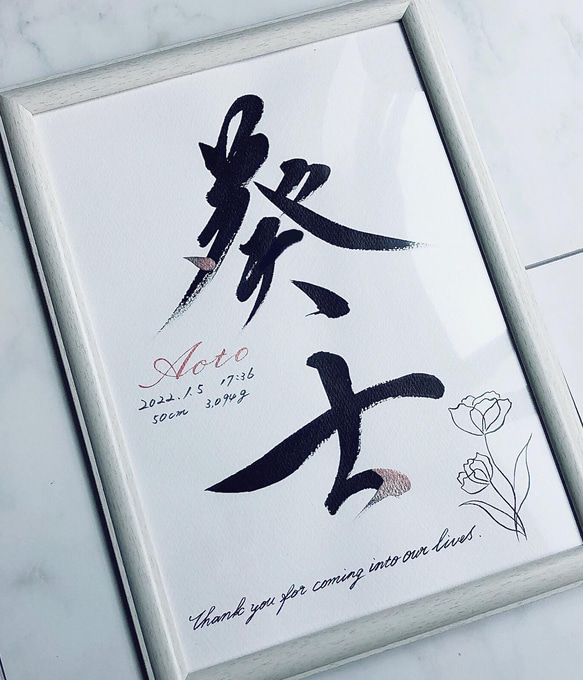 葵士
Aoto
2022.1.5 17:36
50cm 3,094g
Thank you for coming into our lives.